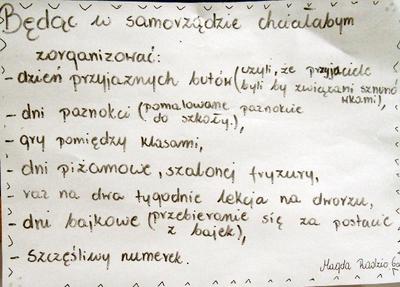 Będąc w samorządzie chciałabym
zorganizować:
- dzień przyjaznych butów (czyli, że przyjaciele
byli by związani sznuró
wkami),
- dni paznokci (pomalowane paznokcie
do szkoły.),
- gry pomiędzy klasami,
- dni piżamowe, szalonej fryzury,
raz na dwa tygodnie lekcja na dworzu,
- dni bajkowe (przebieranie się za postacie
z bajek),
- szczęśliwy numerek.
Magda Radzio